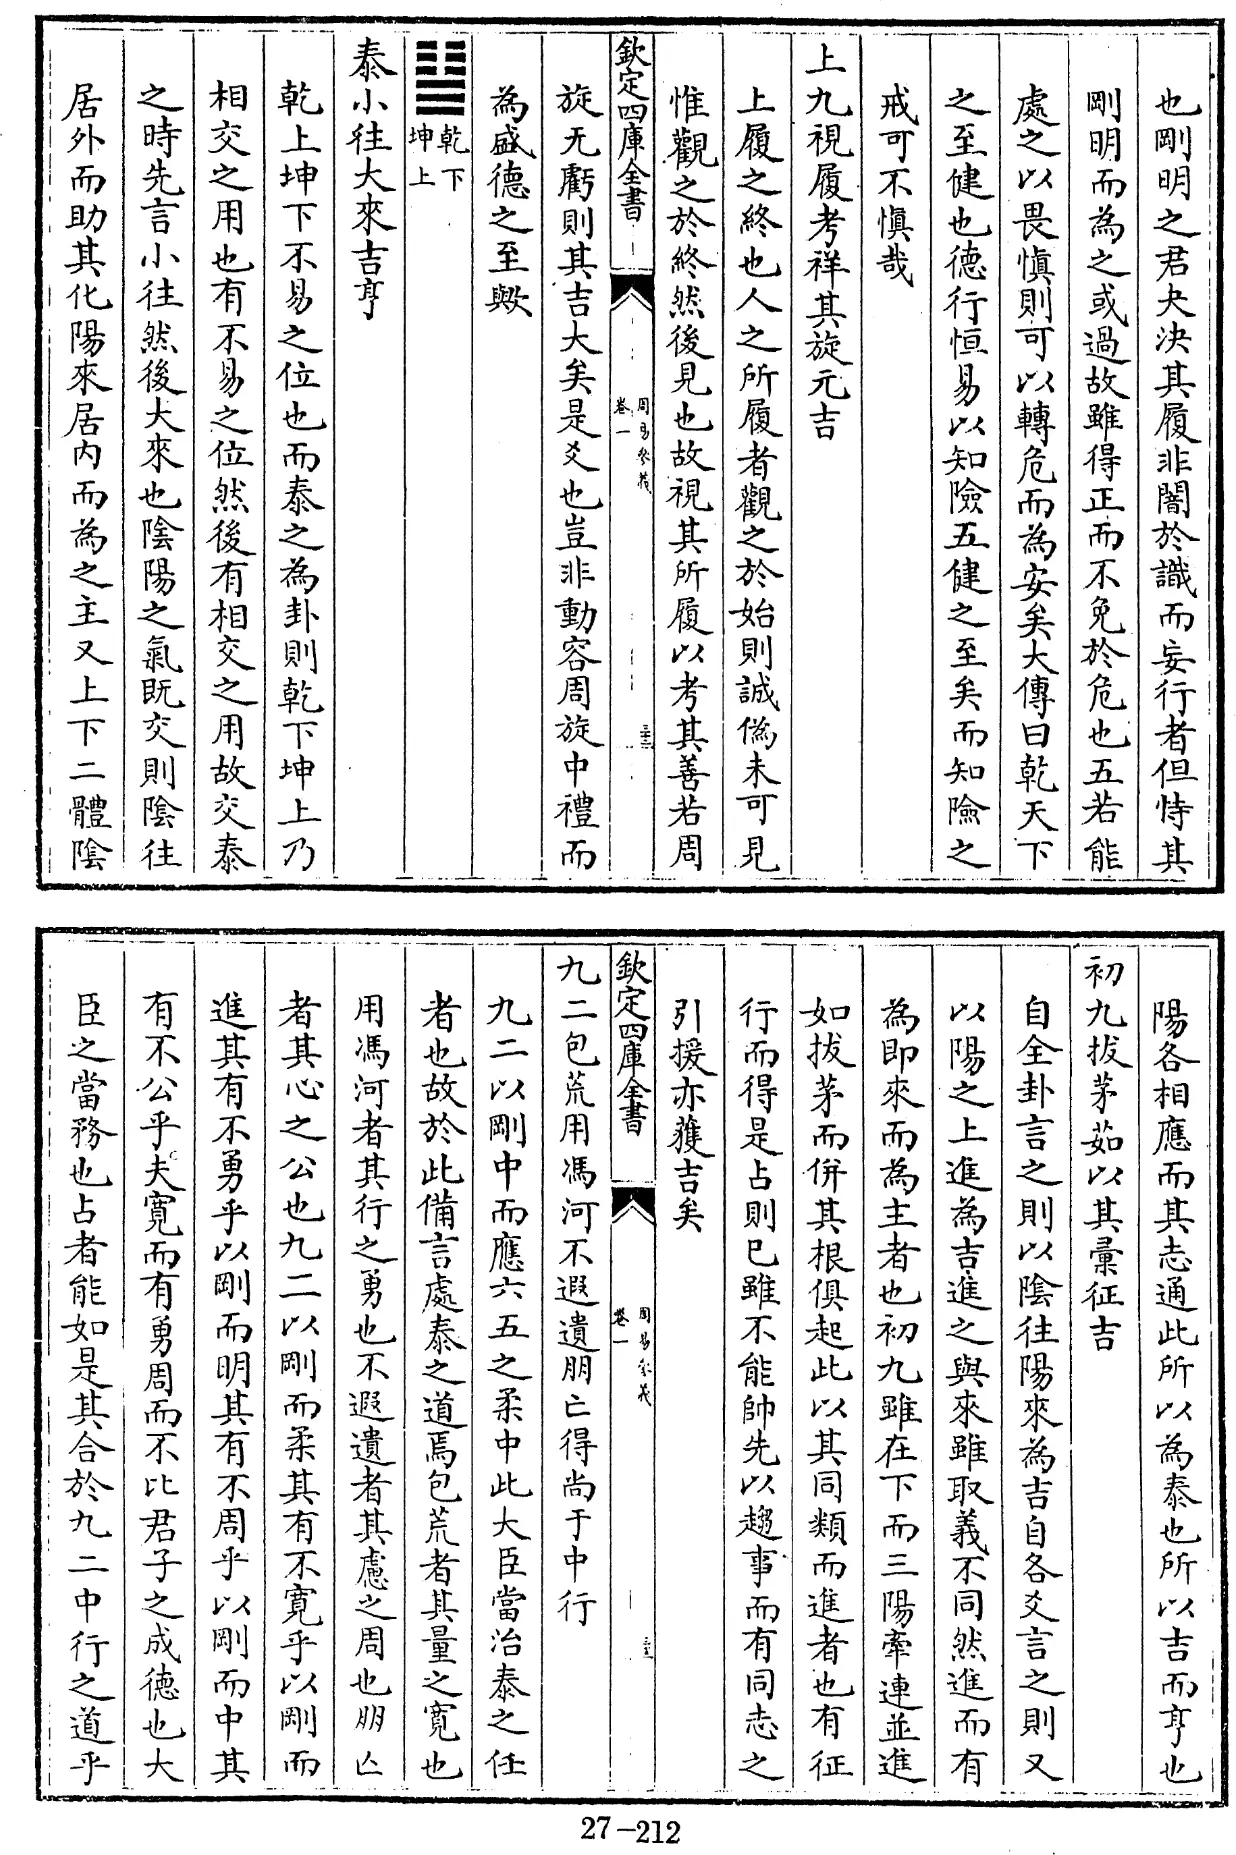 也剛明之君夬決其履非闇於識而妄行者但恃其
剛明而為之或過故雖得正而不免於危也五若能
處之以畏慎則可以轉危而為安矣大傳曰乾天下
之至健也德行恒易以知險五健之至矣而知險之
戒可不慎哉
上九視履考祥其旋元吉
上履之終也人之所履者觀之於始則誠偽未可見
惟觀之於終然後見也故視其所履以考其善若周
欽定四庫全書
周易參義
卷一
三三
旋无虧則其吉大矣是爻也豈非動容周旋中禮而
為盛德之至歟
乾下
坤上
泰小往大來吉亨
乾上坤下不易之位也而泰之為卦則乾下坤上乃
相交之用也有不易之位然後有相交之用故交泰
之時先言小往然後大來也陰陽之氣既交則陰往
居外而助其化陽來居内而為之主又上下二體陰
陽各相應而其志通此所以為泰也所以吉而亨也
初九拔茅茹以其彙征吉
自全卦言之則以陰往陽來為吉自各爻言之則又
以陽之上進為吉進之與來雖取義不同然進而有
為即來而為主者也初九雖在下而三陽牽連並進
如拔茅而併其根俱起此以其同類而進者也有征
行而得是占則已雖不能帥先以趨事而有同志之
引援亦獲吉矣
欽定四庫全書
周易參義
卷一
九二包荒用馮河不遐遺朋亡得尚于中行
九二以剛中而應六五之柔中此大臣當治泰之任
者也故於此備言處泰之道焉包荒者其量之寛也
用馮河者其行之勇也不遐遺者其慮之周也朋亡
者其心之公也九二以剛而柔其有不寛乎以剛而
進其有不勇乎以剛而明其有不周乎以剛而中其
有不公乎夫寛而有勇周而不比君子之成德也大
臣之當務也占者能如是其合於九二中行之道乎
27-212